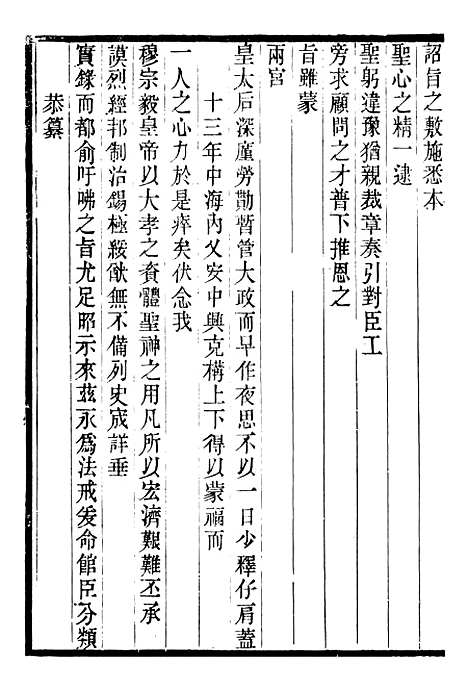 詔旨之敷施悉本
聖心之精一逮
聖躬違豫猶親裁章奏引對臣工
旁求顧問之才普下推恩之
旨雖蒙
兩宮
皇太后深廑勞勩暫管大政而早作夜思不以一日少釋仔肩蓋
十三年中海內乂安中興克構上下得以蒙福而
一人之心力於是瘁矣伏念我
穆宗毅皇帝以大孝之資體聖神之用凡所以宏濟艱難丕承
謨烈經邦制治錫極綏猷無不備列史宬詳垂
實錄而都俞吁咈之旨尤足昭示來茲永為法戒爰命館臣分類
恭纂